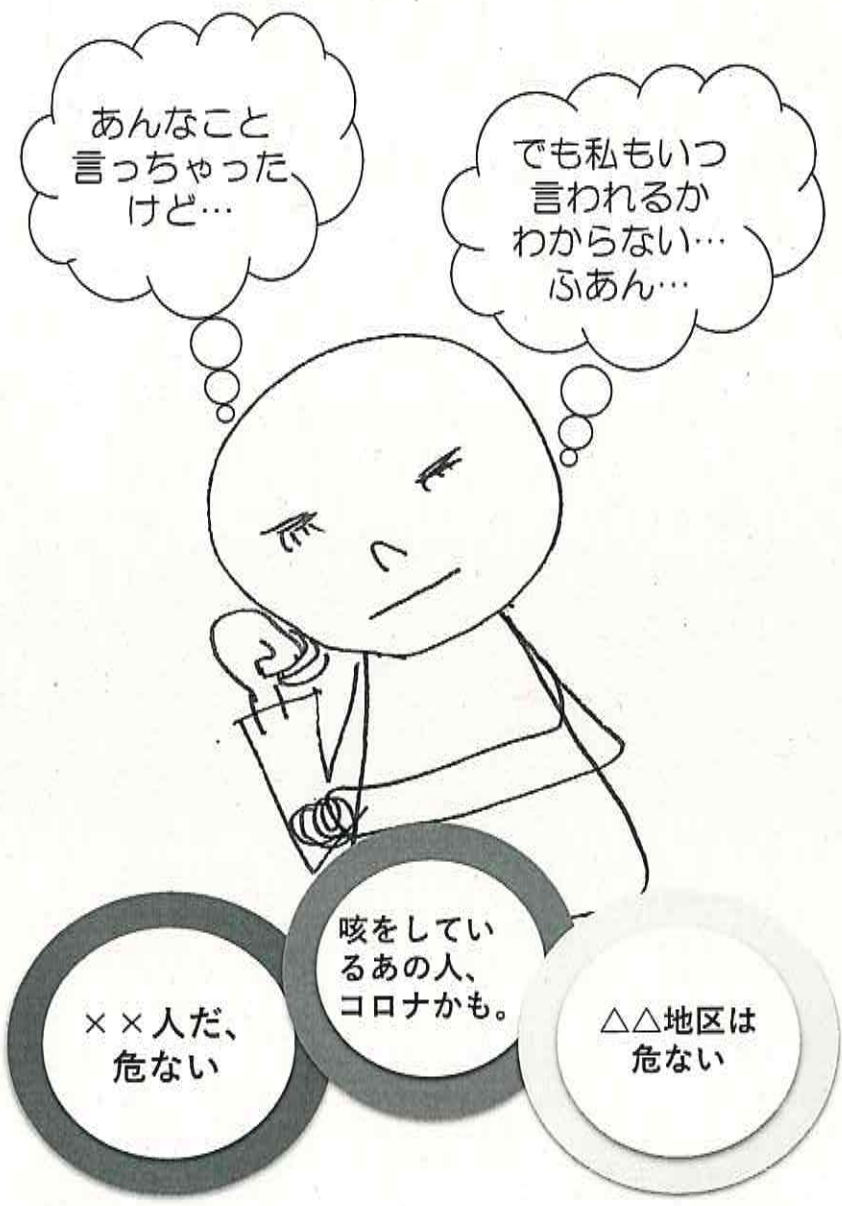 あんなこと
言っちゃった
けど…
でも私もいつ
言われるか
わからない…
ふあん…
××人だ、
危ない
咳をしてい
るあの人、
コロナかも。
△△地区は
危ない